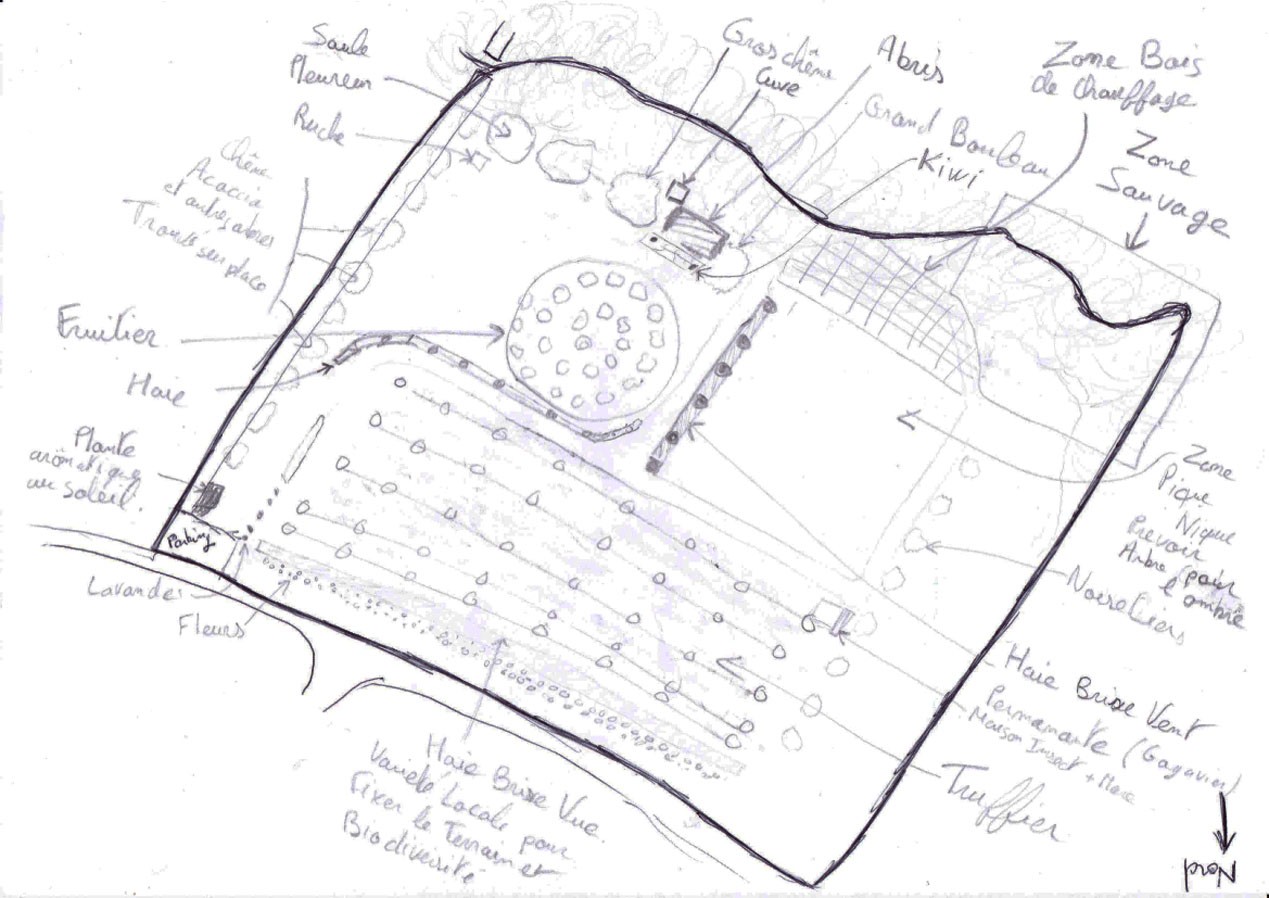 Saule
Pleureur
Ruche
Chêne
Acaccia
et autres arbres
Trouvé sur place
Fruitier
Haie
Plante
arômatique
au soleil.
Parking
Lavandes
Fleurs
Gros chêne
Cuve
Abris
Grand Bouleau
Kiwi
Zone Bois
de Chauffage
Zone
Sauvage
Zone
Pique
Nique
Prevoir
Arbre pour
l'ombre
Noisetiers
Haie Brise Vent
Permamante (Gagavier)
Maison Insect + Mare
Truffier
Haie Brise Vue
Varieté Locale pour
Fixer le Terrain et
Biodiversité
Nord